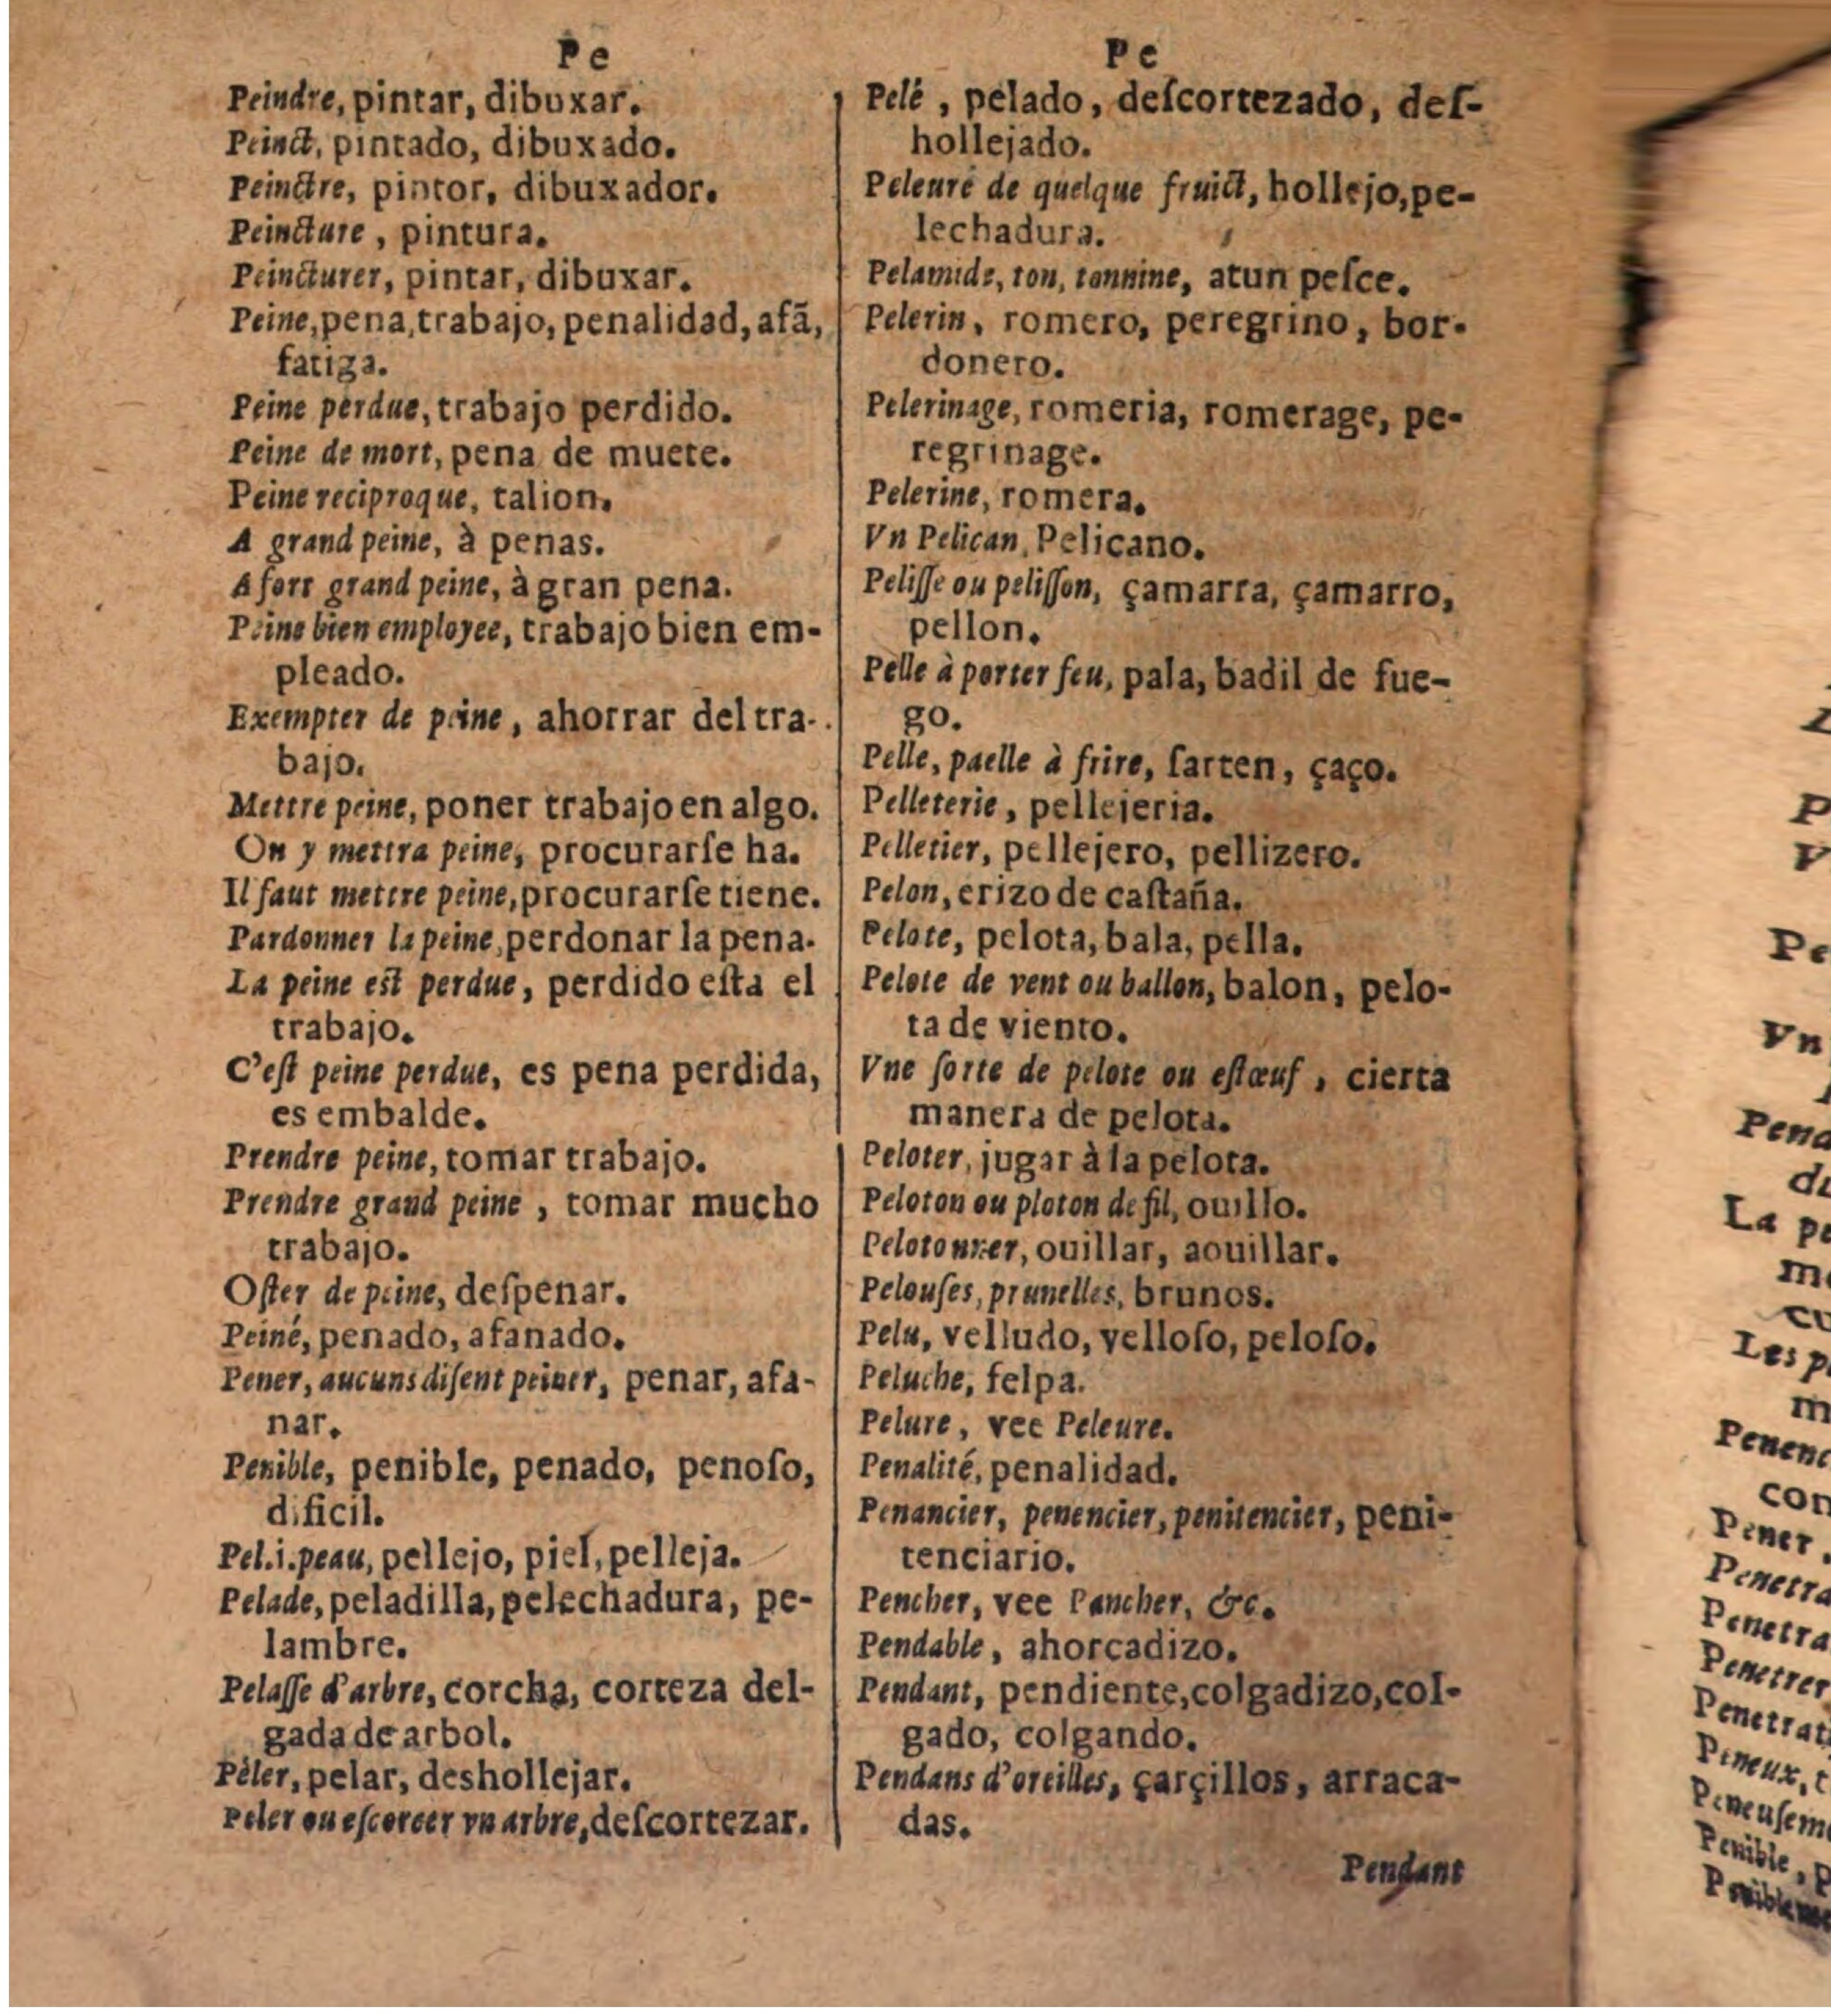 Pe
Peindre, pintar, dibuxar.
Peinct, pintado, dibuxado.
Peinctre, pintor, dibuxador.
Peincture, pintura.
Peincturer, pintar, dibuxar.
Peine, pena, trabajo, penalidad, afã,
fatiga.
Peine perdue, trabajo perdido.
Peine de mort, pena de muete.
Peine reciproque, talion.
A grand peine, à penas.
A fort grand peine, à gran pena.
Peine bien employee, trabajo bien em-
pleado.
Exempter de peine, ahorrar del tra-
bajo.
Mettre peine, poner trabajo en algo.
On y mettra peine, procurarſe ha.
Il faut mettre peine, procurarſe tiene.
Pardonner la peine, perdonar la pena.
La peine est perdue, perdido eſta el
trabajo.
C'eſt peine perdue, es pena perdida,
es embalde.
Prendre peine, tomar trabajo.
Prendre grand peine, tomar mucho
trabajo.
Oſter de peine, deſpenar.
Peiné, penado, afanado.
Pener, aucuns diſent peiner, penar, afa-
nar.
Penible, penible, penado, penoſo,
dificil.
Pel.i.peau, pellejo, piel, pelleja.
Pelade, peladilla, pelechadura, pe-
lambre.
Pelaſſe d'arbre, corcha, corteza del-
gada de arbol.
Pèler, pelar, deshollejar.
Peler ou eſcorcer vn arbre, deſcortezar.
Pe
Pelé, pelado, deſcortezado, deſ-
hollejado.
Peleure de quelque fruict, hollejo, pe-
lechadura.
Pelamide, ton, tonnine, atun peſce.
Pelerin, romero, peregrino, bor-
donero.
Pelerinage, romeria, romerage, pe-
regrinage.
Pelerine, romera.
Vn Pelican, Pelicano.
Peliſſe ou peliſſon, çamarra, çamarro,
pellon.
Pelle à porter feu, pala, badil de fue-
go.
Pelle, paelle à frire, ſarten, çaço.
Pelleterie, pellejeria.
Pelletier, pellejero, pellizero.
Pelon, erizo de caſtaña.
Pelote, pelota, bala, pella.
Pelote de vent ou ballon, balon, pelo-
ta de viento.
Vne ſorte de pelote ou eſtœuf, cierta
manera de pelota.
Peloter, jugar à la pelota.
Peloton ou ploton de fil, ouillo.
Pelotonner, ouillar, aouillar.
Pelouſes, prunelles, brunos.
Pelu, velludo, velloſo, peloſo.
Peluche, felpa.
Pelure, vee Peleure.
Penalité, penalidad.
Penancier, penencier, penitencier, peni-
tenciario.
Pencher, vee Pancher, &c.
Pendable, ahorcadizo.
Pendant, pendiente, colgadizo, col-
gado, colgando.
Pendans d'oreilles, çarçillos, arraca-
das.
Pendant